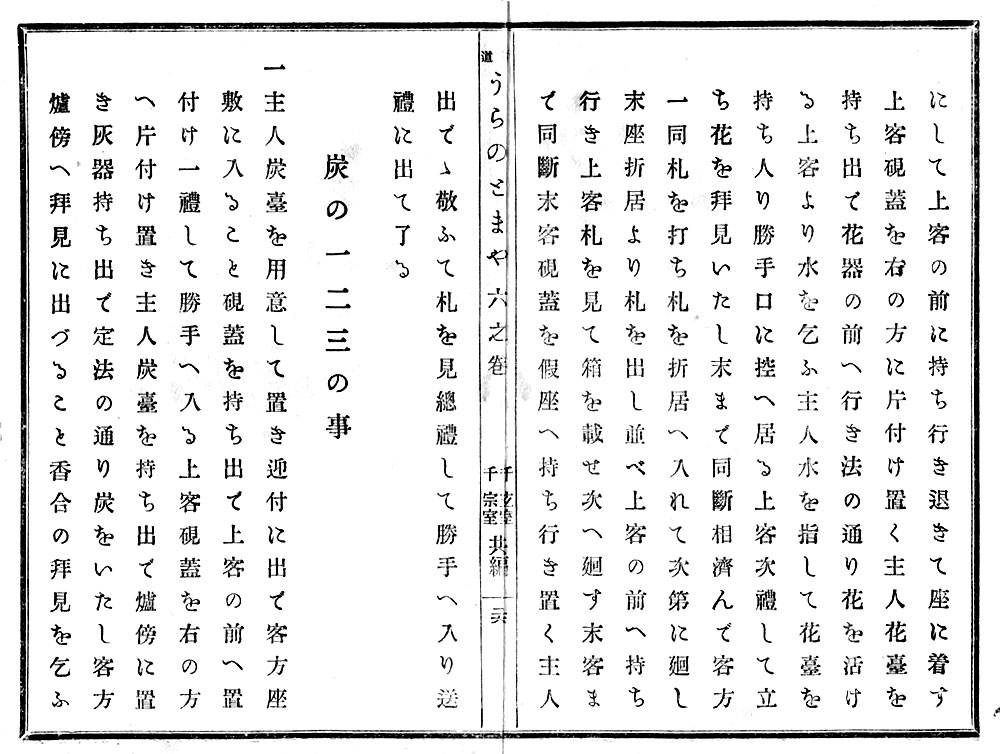 にして上客の前に持ち行き退きて座に着す
上客硯蓋を右の方に片付け置く主人花臺を
持ち出て花器の前へ行き法の通り花を活け
る上客より水を乞ふ主人水を指して花臺を
持ち人り勝手口に控へ居る上客次禮して立
ち花を拜見いたし末まで同斷相濟んで客方
一同札を打ち札を折居へ入れて次第に廻し
末座折居より札を出し並べ上客の前へ持ち
行き上客札を見て箱を載せ次へ廻す末客ま
で同斷末客硯蓋を假座へ持ち行き置く主人
道 うらのとまや 六之卷 千玄室 千宗室 共編 二六
出でゝ敬ふて札を見總禮して勝手へ入り送
禮に出て了る
炭の一二三の事
一主人炭臺を用意して置き迎付に出て客方座
敷に入ること硯蓋を持ち出で上客の前へ置
付け一禮して勝手へ入る上客硯蓋を右の方
へ片付け置き主人炭臺を持ち出て爐傍に置
き灰器持ち出で定法の通り炭をいたし客方
爐傍へ拜見に出づること香合の拜見を乞ふ